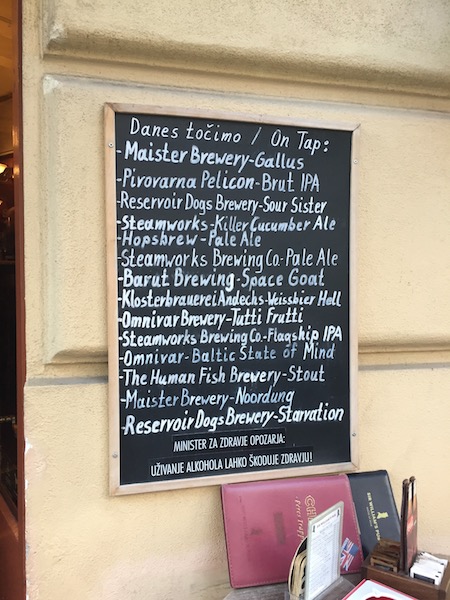 Danes točimo / On Tap:
-Maister Brewery-Gallus
-Pivovarna Pelicon-Brut IPA
-Reservoir Dogs Brewery-Sour Sister
-Steamworks-Killer Cucumber Ale
-Hopsbrew-Pale Ale
-Steamworks Brewing Co.-Pale Ale
-Barut Brewing-Space Goat
-Klosterbrauerei Andechs-Weissbier Hell
-Omnivar Brewery-Tutti Frutti
-Steamworks Brewing Co.-Flagship IPA
-Omnivar-Baltic State of Mind
-The Human Fish Brewery-Stout
-Maister Brewery-Noordung
-Reservoir Dogs Brewery-Starvation
MINISTER ZA ZDRAVJE OPOZARJA:
UŽIVANJE ALKOHOLA LAHKO ŠKODUJE ZDRAVJU!
SIR WILLIAM'S PUB